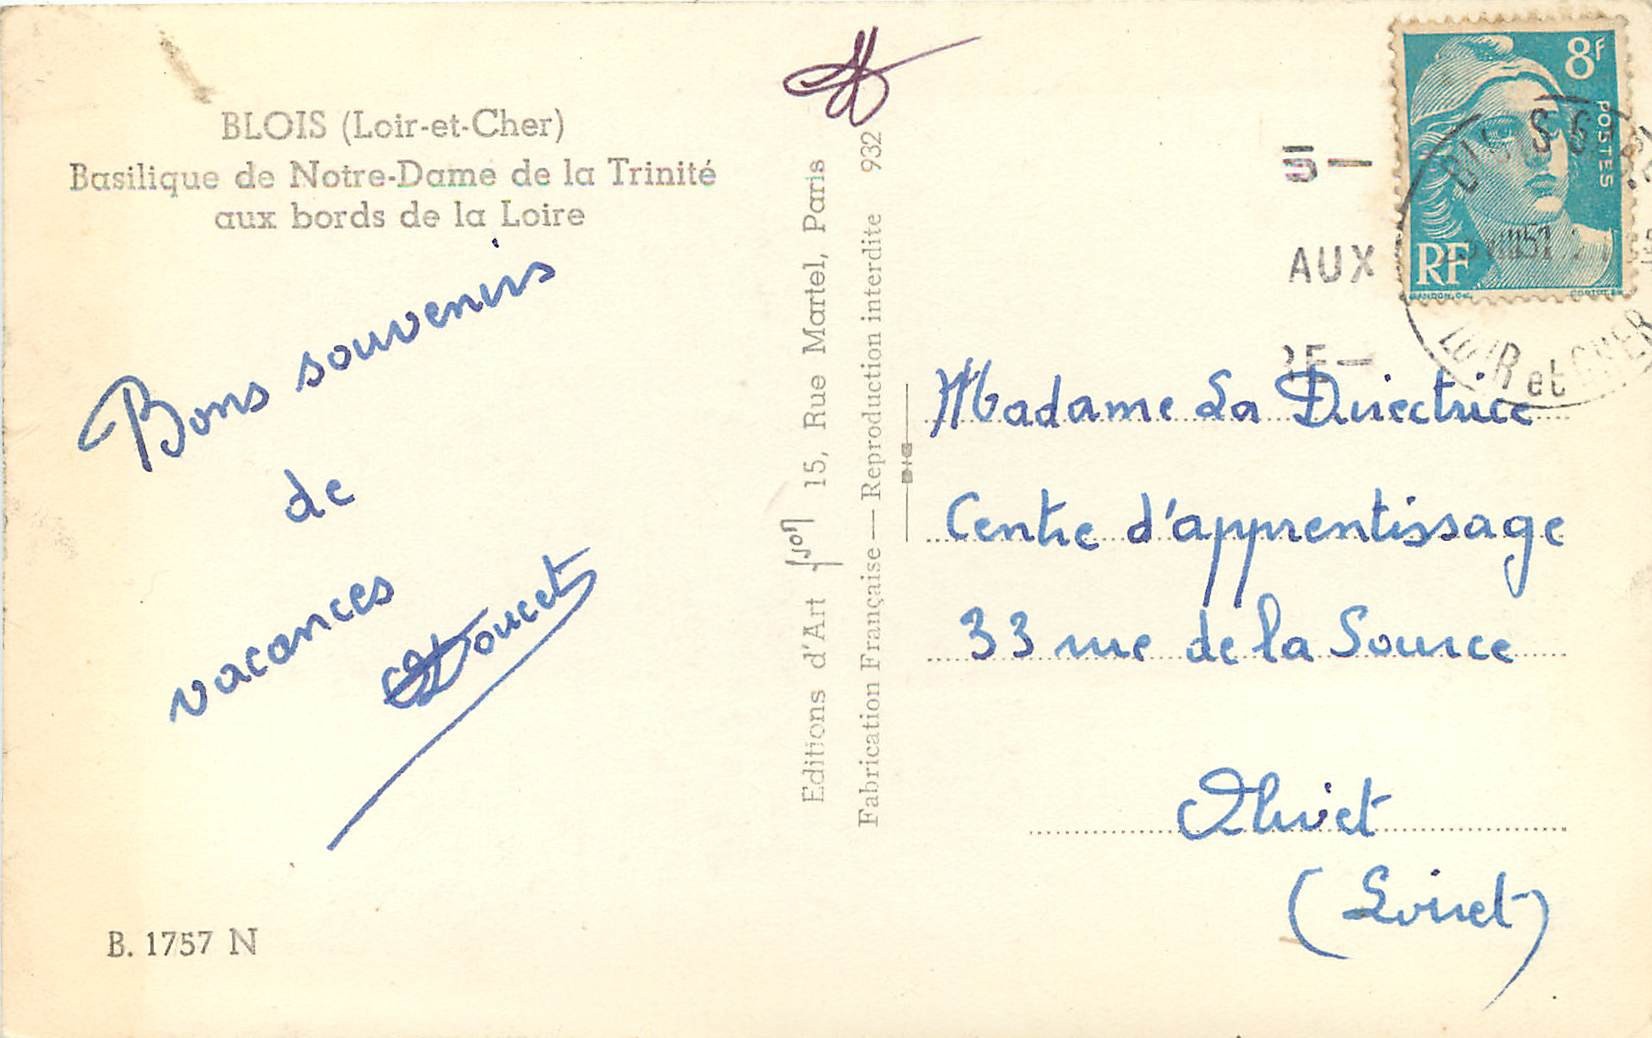 BLOIS (Loir-et-Cher)
Basilique de Notre-Dame de la Trinité
aux bords de la Loire
Bons souvenirs
de
vacances
Doucet
B. 1757 N
Editions d'Art yvon 15, Rue Martel, Paris
Fabrication Française — Reproduction interdite 932
8F
POSTES
RF
AUX
LOIR et CHER
Madame La Directrice
Centre d'apprentissage
33 rue de la Source
Olivet
(Loiret)